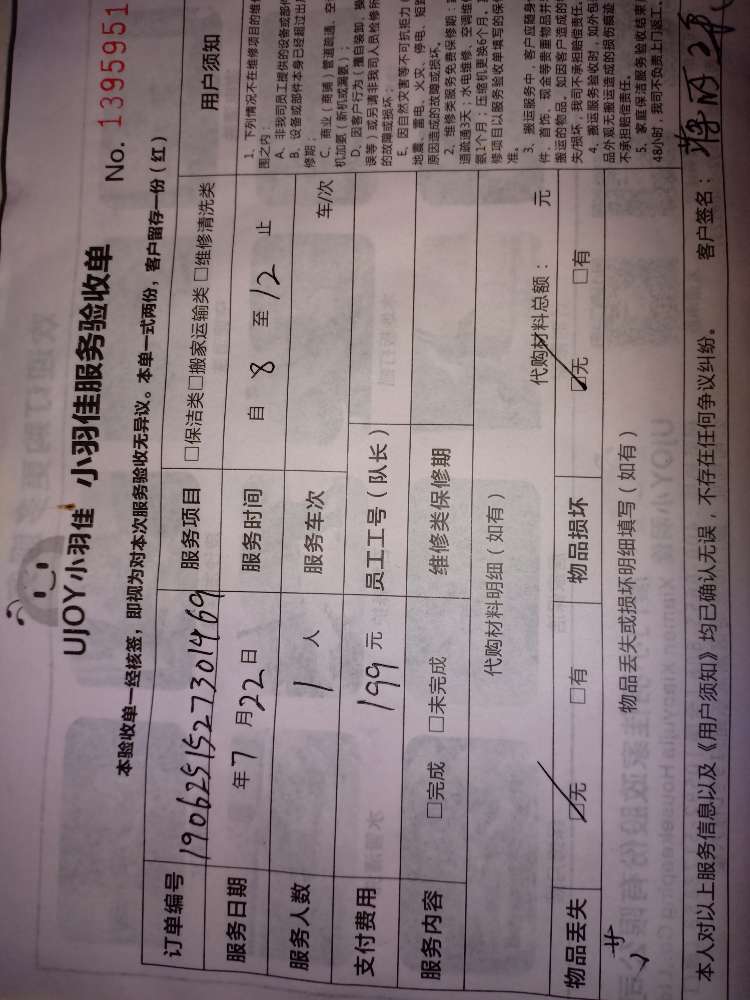 UJOY小羽佳 小羽佳服务验收单
No. 1395951
本验收单一经核签，即视为对本次服务验收无异议。本单一式两份，客户留存一份（红）
订单编号 1906251527301469 服务项目 □保洁类□搬家运输类 □维修清洗类
服务日期 年7月22日 服务时间 自 8 至 12 止
服务人数 1 人 服务车次 车/次
支付费用 199 元 员工工号（队长）
服务内容 □完成 □未完成 维修类保修期
代购材料明细（如有）
代购材料总额： 元
物品丢失 ☑无 □有 物品损坏 ☑无 □有
物品丢失或损坏明细填写（如有）
用户须知
1、下列情况不在维修项目的维
围之内：
A、非我司员工提供的设备或部件
B、设备或部件本身已经超过出
修期；
C、商业（商铺）管道疏通、空
机加氨（新机或漏氨）；
D、因客户行为（擅自装卸、操
误等）或另请非我司人员检修所
的故障或损坏；
E、因自然灾害等不可抗拒力（
地震、雷电、火灾、停电、短路
原因造成的故障或损坏。
2、维修类服务免费保修期：
道疏通5天；水电维修、空调维
氨1个月；压缩机更换6个月，
修项目以服务验收单填写的保修
准。
3、搬运服务中，客户应随身
件、首饰、现金等贵重物品并
搬运的物品，如因客户造成的
失/损坏，我司不承担赔偿责任。
4、搬运服务验收时，如外包
品外观无搬运造成的损伤痕迹
不承担赔偿责任。
5、家庭保洁服务验收结束
48小时，我司不负责上门返工。
本人对以上服务信息以及《用户须知》均已确认无误，不存在任何争议纠纷。 客户签名：